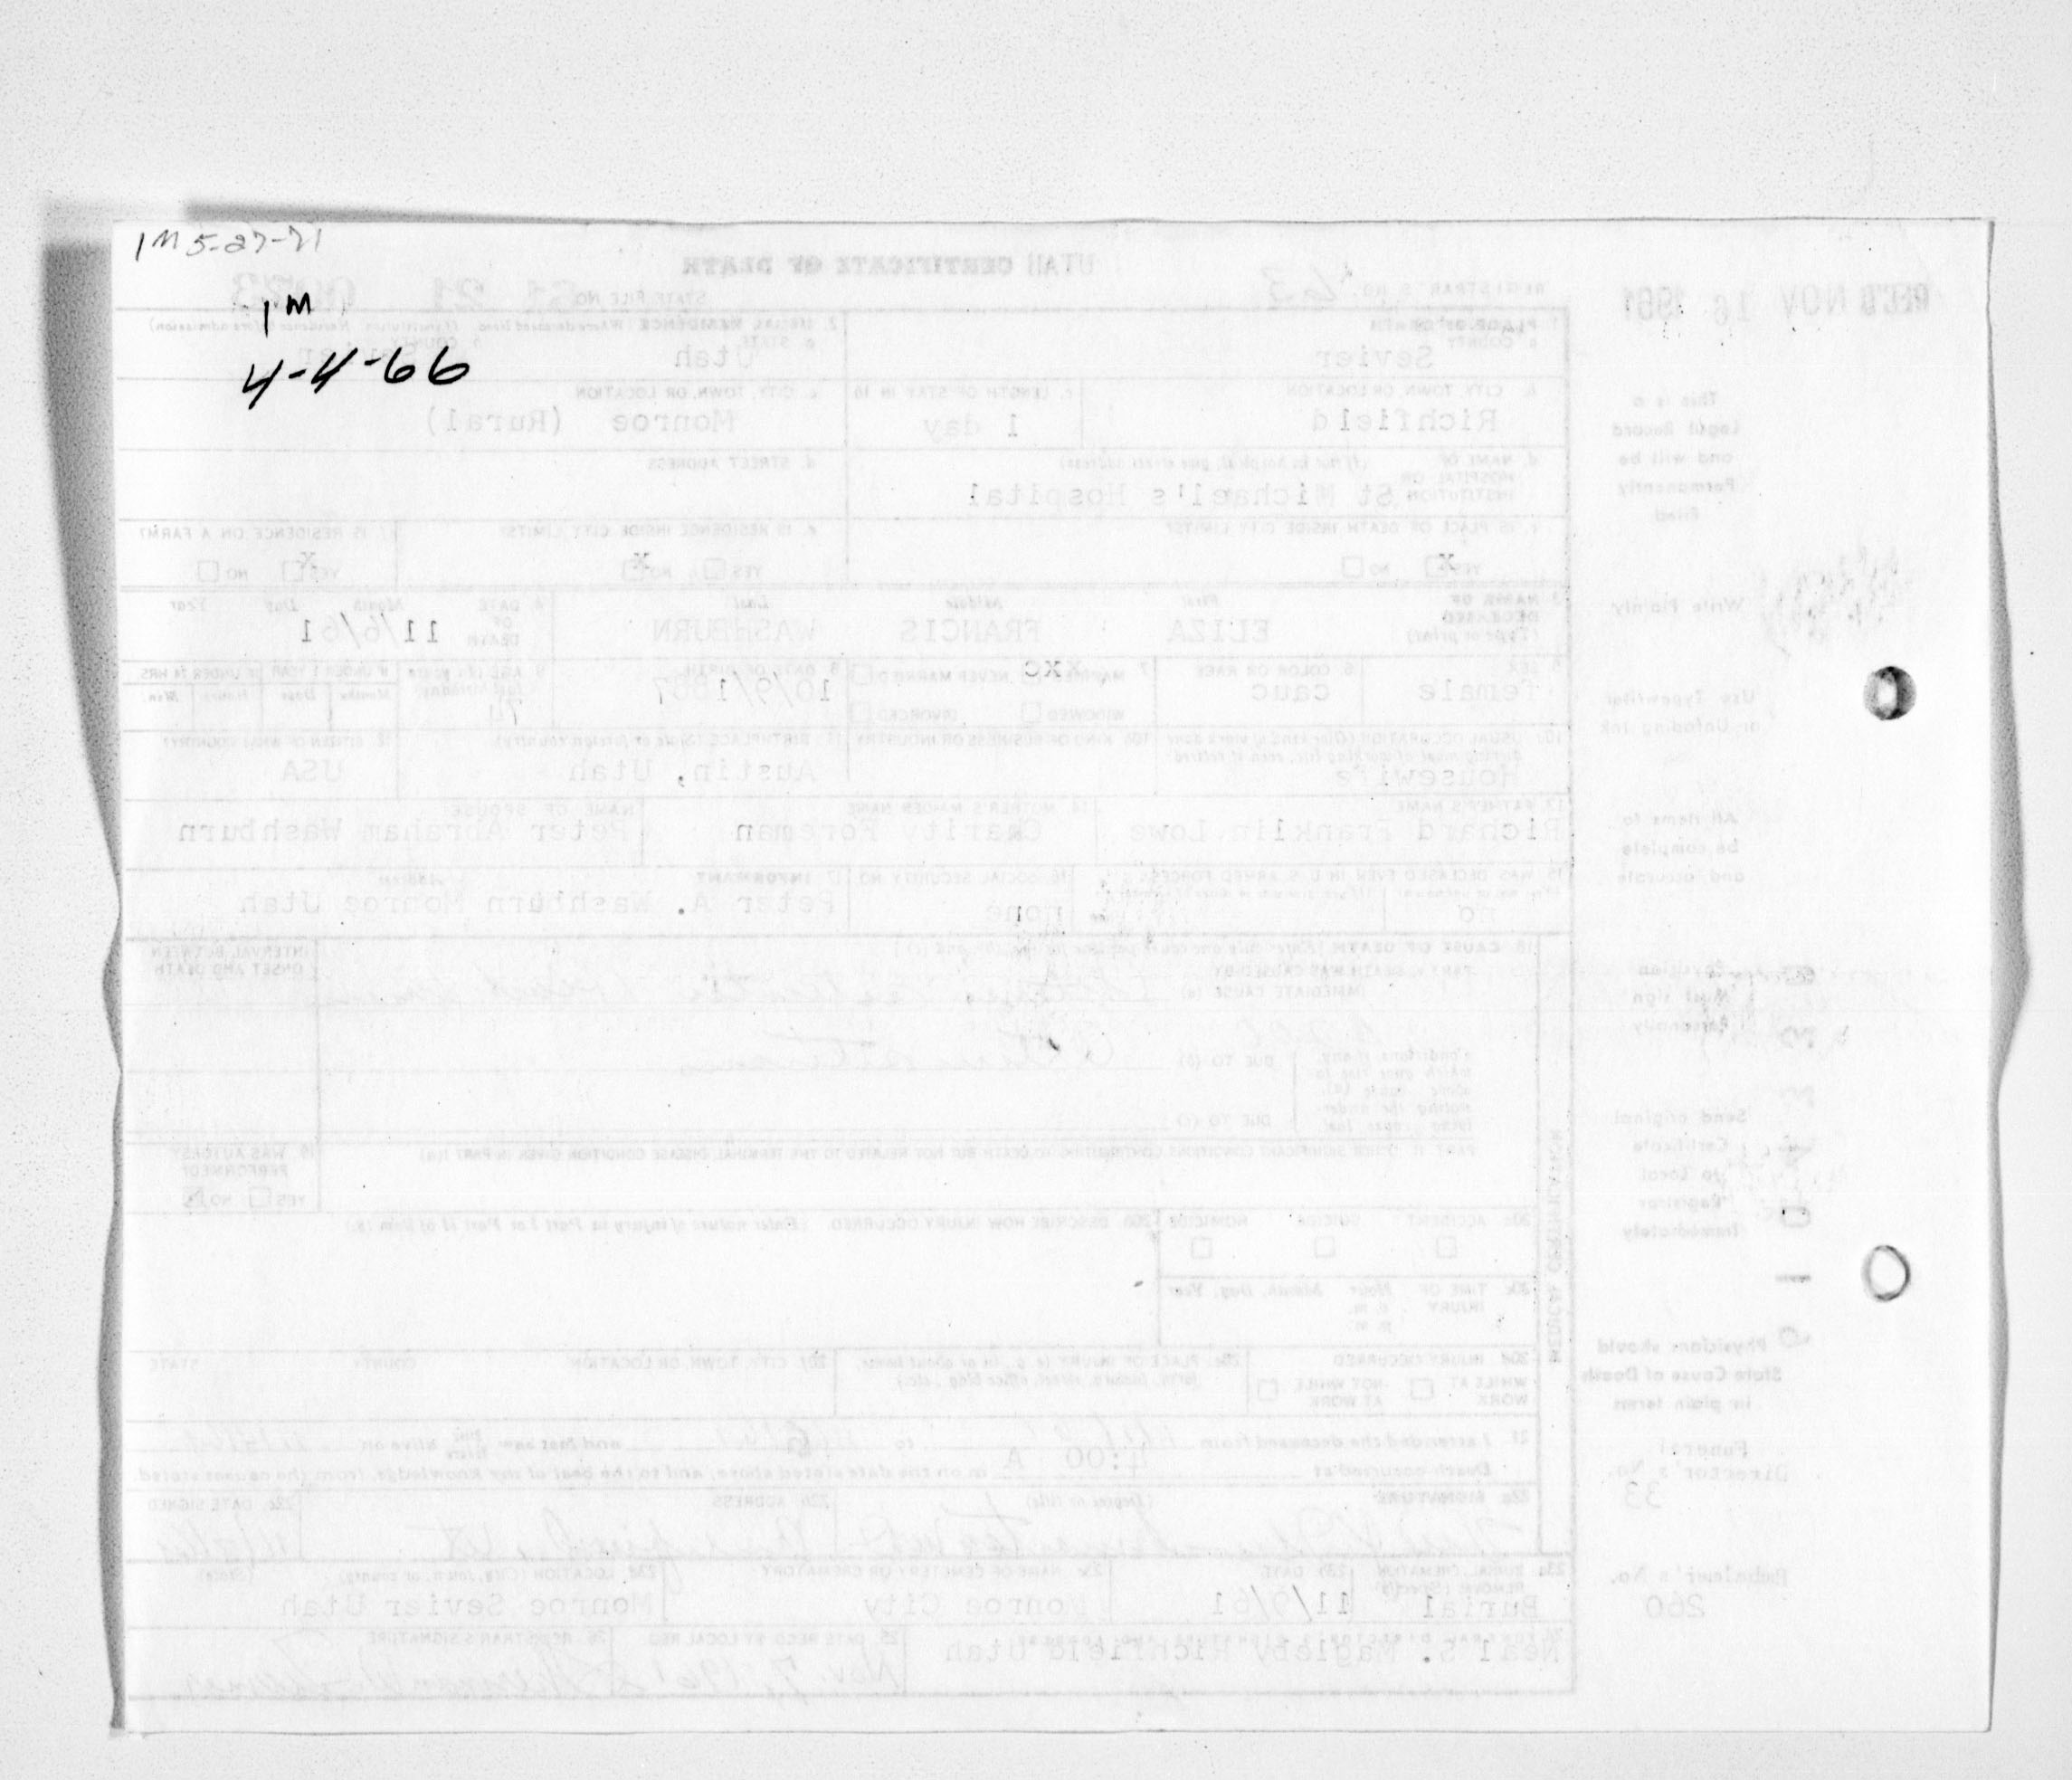 1M 5-27-71
1M
4-4-66
UTAH CERTIFICATE OF DEATH
REC'D NOV 16 1961
REGISTRAR'S NO.
STATE FILE NO. 61 21
1. PLACE OF DEATH
a. COUNTY
Sevier
2. USUAL RESIDENCE (Where deceased lived. If institution: Residence before admission)
a. STATE
Utah
b. COUNTY
Sevier
b. CITY, TOWN, OR LOCATION
Richfield
c. LENGTH OF STAY IN 1b
1 day
c. CITY, TOWN, OR LOCATION
Monroe (Rural)
d. NAME OF HOSPITAL OR INSTITUTION (If not in hospital, give street address)
St Michael's Hospital
d. STREET ADDRESS
e. IS PLACE OF DEATH INSIDE CITY LIMITS?
YES X NO
e. IS RESIDENCE INSIDE CITY LIMITS?
YES NO X
f. IS RESIDENCE ON A FARM?
YES X NO
3. NAME OF DECEASED (Type or print)
First Middle Last
ELIZA FRANCIS WASHBURN
4. DATE OF DEATH Month Day Year
11/6/61
5. SEX
female
6. COLOR OR RACE
cauc
7. MARRIED NEVER MARRIED
WIDOWED DIVORCED
8. DATE OF BIRTH
10/9/1887
9. AGE (In years last birthday)
74
IF UNDER 1 YEAR
Months Days
IF UNDER 24 HRS
Hours Min.
10a. USUAL OCCUPATION (Give kind of work done during most of working life, even if retired)
Housewife
10b. KIND OF BUSINESS OR INDUSTRY
11. BIRTHPLACE (State or foreign country)
Austin, Utah
12. CITIZEN OF WHAT COUNTRY?
USA
13. FATHER'S NAME
Richard Franklin Lowe
14. MOTHER'S MAIDEN NAME
Charity Foreman
NAME OF SPOUSE
Peter Abraham Washburn
15. WAS DECEASED EVER IN U.S. ARMED FORCES?
no
16. SOCIAL SECURITY NO.
none
17. INFORMANT Address
Peter A. Washburn Monroe Utah
18. CAUSE OF DEATH
PART I. DEATH WAS CAUSED BY
IMMEDIATE CAUSE (a)
Conditions, if any, which gave rise to above cause (a), stating the under-lying cause last.
DUE TO (b)
DUE TO (c)
INTERVAL BETWEEN ONSET AND DEATH
PART II. OTHER SIGNIFICANT CONDITIONS CONTRIBUTING TO DEATH BUT NOT RELATED TO THE TERMINAL DISEASE CONDITION GIVEN IN PART I(a)
19. WAS AUTOPSY PERFORMED?
YES NO X
20a. ACCIDENT SUICIDE HOMICIDE
20b. DESCRIBE HOW INJURY OCCURRED. (Enter nature of injury in Part I or Part II of item 18.)
20c. TIME OF INJURY Hour Month, Day, Year
a.m.
p.m.
20d. INJURY OCCURRED
WHILE AT WORK NOT WHILE AT WORK
20e. PLACE OF INJURY (e.g., in or about home, farm, factory, street, office bldg., etc.)
20f. CITY, TOWN, OR LOCATION COUNTY STATE
21. I attended the deceased from to and last saw her alive on
Death occurred at 4:00 A m on the date stated above, and to the best of my knowledge, from the causes stated.
22a. SIGNATURE (Degree or title)
22b. ADDRESS
22c. DATE SIGNED
23a. BURIAL, CREMATION, REMOVAL (Specify)
Burial
23b. DATE
11/9/61
23c. NAME OF CEMETERY OR CREMATORY
Monroe City
23d. LOCATION (City, town, or county) (State)
Monroe Sevier Utah
24. FUNERAL DIRECTOR'S SIGNATURE AND ADDRESS
Neal S. Magleby Richfield Utah
25. DATE REC'D BY LOCAL REG.
Nov. 7, 1961
26. REGISTRAR'S SIGNATURE
MEDICAL CERTIFICATION
This is a Legal Record and will be Permanently Filed
Write Plainly
Use Typewriter or Unfading Ink
All items to be complete and accurate
Physician Must sign Personally
Send original Certificate to Local Registrar Immediately
Physicians should State Cause of Death in plain terms
Funeral Director's No.
33
Embalmer's No.
260